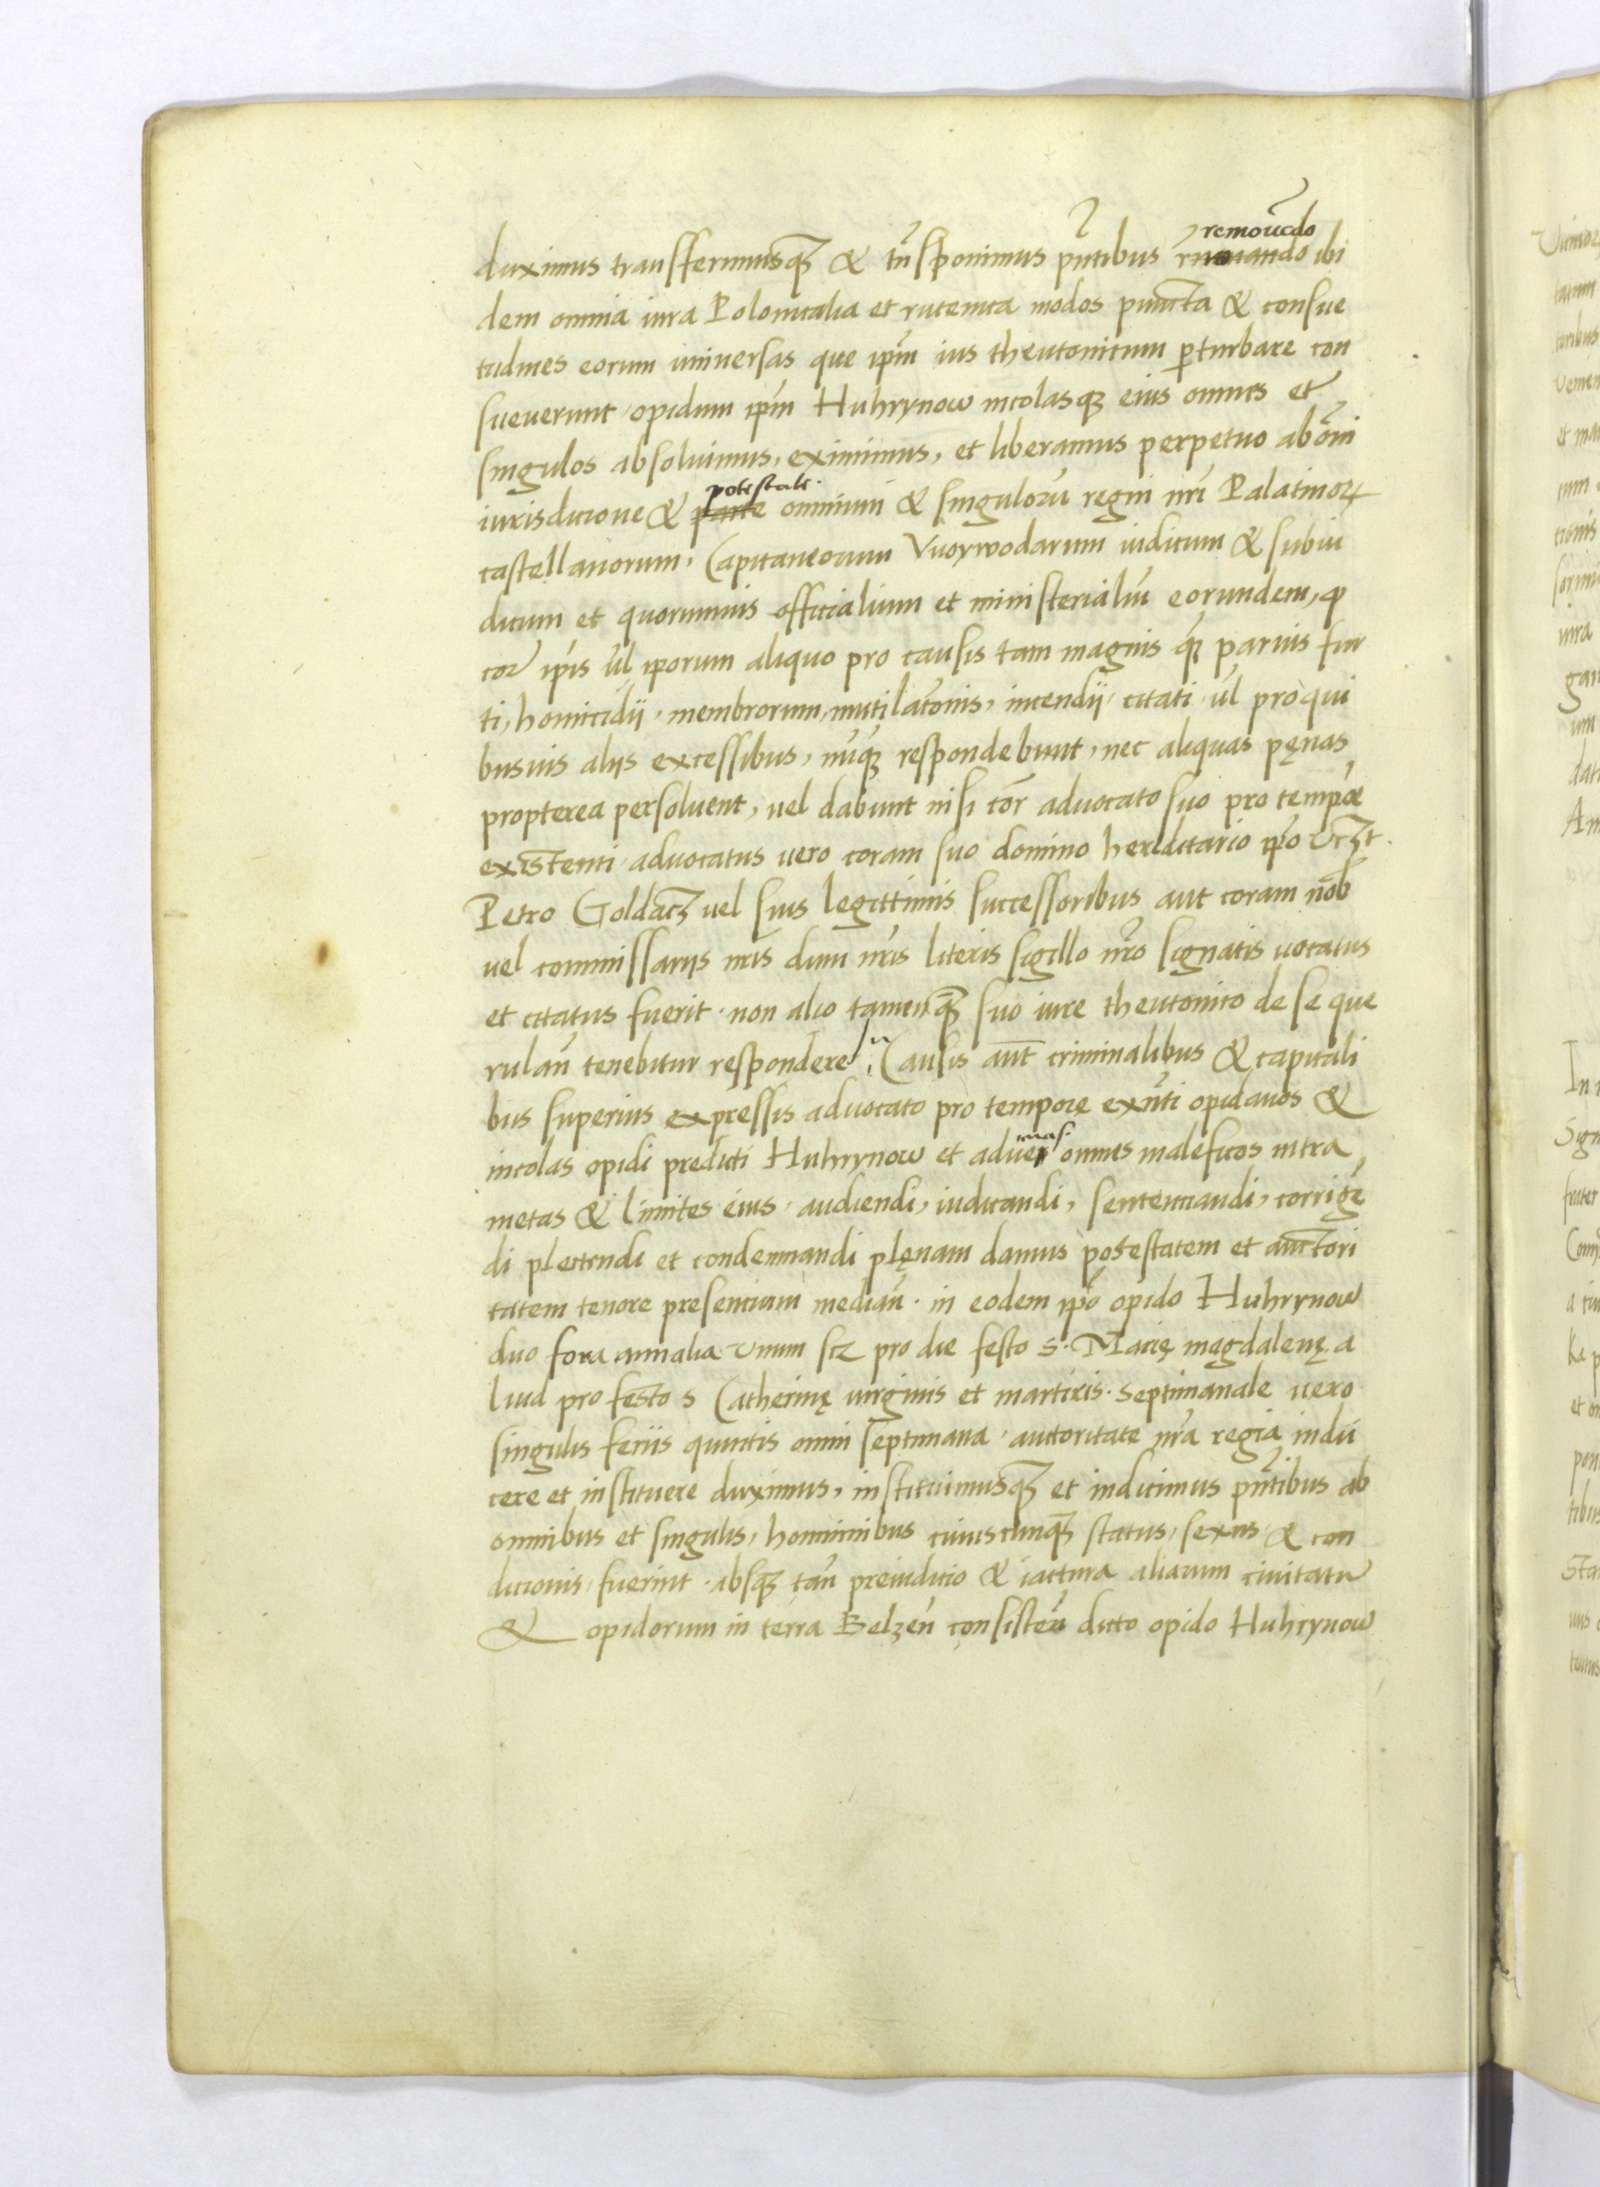 duximus transfferimusq₃ & tn̄sponimus pn̄tibus removēdo ibi
dem omnia iura Polonicalia et rutenica modos puncta & consue
tudines eorum universas que ipm̄ ius theutonicum ꝑturbare con
sueverunt opidum ipm̄ Huhrynow incolasq₃ eius omnes et
singulos absolvimus, eximimus, et liberamus perpetuo ab om̄i
iurisdicione & potestate omnium & singuloru̅ regni nr̄i Palatinoꝝ
castellanorum, Capitaneorum Vuoywodarum iudicum & subiu
dicum et quorumvis officialium et ministerialiu̅ eorundem, ꝙ
cor̄ ip̄is ūl ip̄orum aliquo pro causis tam magnis q̄₃ parvis fur
ti, homicidii, membrorum, mutilac̄onis, incendii, citati, ūl pro qui
busvis aliis excessibus, nūq₃ respondebunt, nec aliquas pęnas
propterea persolvent, vel dabunt nisi cor̄ advocato suo pro tempore
existenti advocatus vero coram suo domino hereditario ip̄o
Petro Goldacz vel suis legittimis successoribus aut coram nob̄
vel commissariis nr̄is dum nr̄is literis sigillo nr̄o signatis vocatus
et citatus fuerit. non alio tamenq₃ suo iure theutonico de se que
rulan̄ tenebitur respondere, In Causis aut̄ criminalibus & capitali
bus superius expressis advocato pro tempore exn̄ti opidanos &
incolas opidi predicti Huhrynow et advenas omnes maleficos intra
metas & limites eius, audiendi, iudicandi, sentenciandi, corrigē
di plectendi et condemnandi plęnam damus potestatem et auctori
tatem tenore presencium median̄. in eodem ip̄o opido Huhrynow
duo fora annalia unum scz pro die festo s. Marię magdalenę a
liud pro festo s Catherinę virginis et martiris. septimanale vero
singulis feriis quintis omni septimana, auctoritate nr̄a regia indu
cere et instituere duximus, instituimusq₃ et indicimus pn̄tibus ab
omnibus et singulis, hominibus cuiuscunq₃ status, sexus & con
dicionis, fuerint. absq₃ tan̄ preiudicio & iactura aliarum civitatu̅
& opidorum in terra Belzen̄ consisten̄ dicto opido Huhrynow